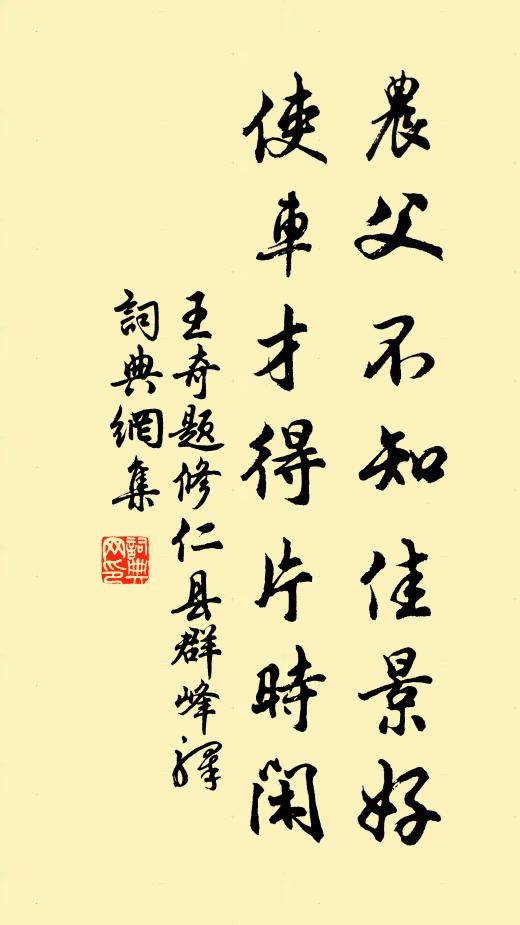 農父不知佳景好
使車才得片時閑
王奇題修仁县群峰驿
詞典網集
詞典网印